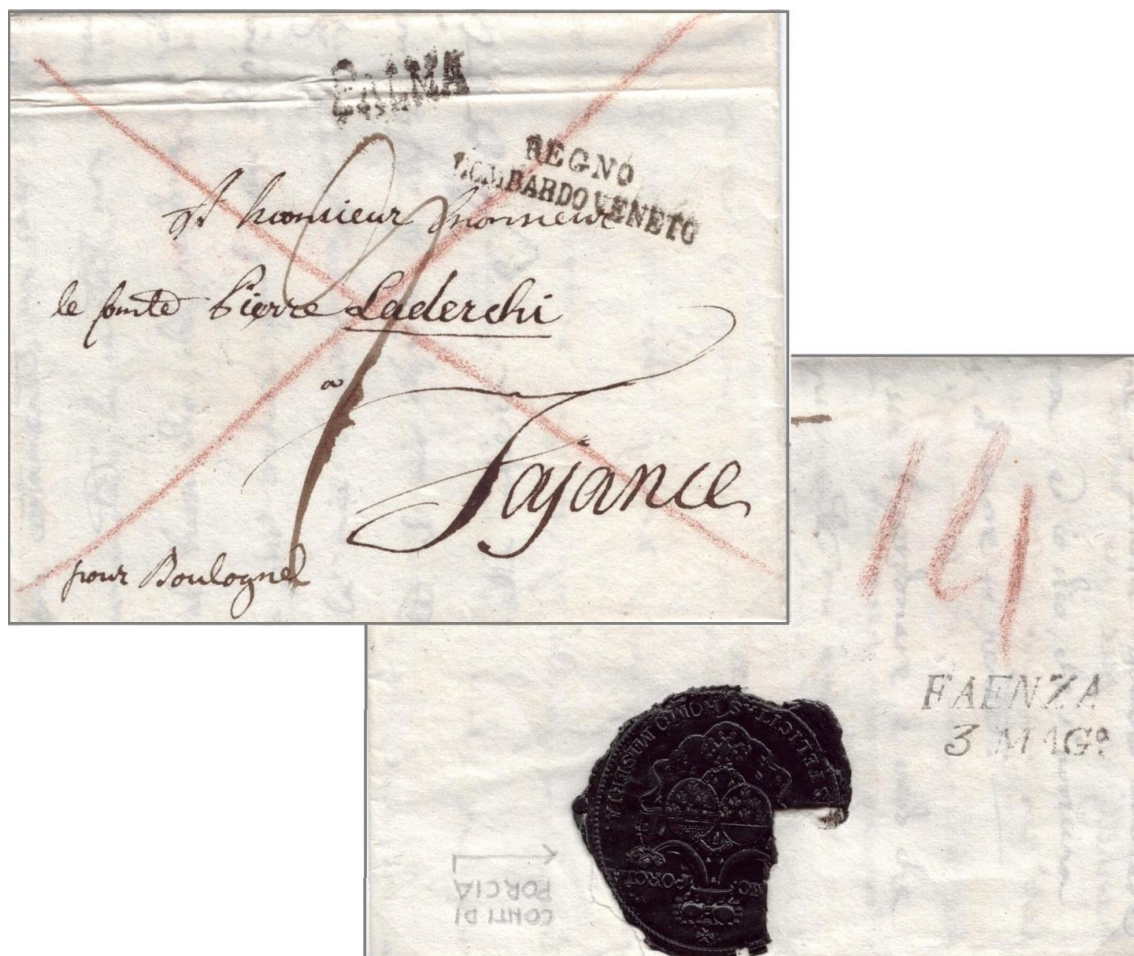 PALMA
REGNO
LOMBARDO VENETO
A Monsieur Monsieur
le Comte Pierre Laderchi
a
Fajance
pour Boulogne
14
FAENZA
3 MAGº
PORCIA
CONTI DI
PORCIA